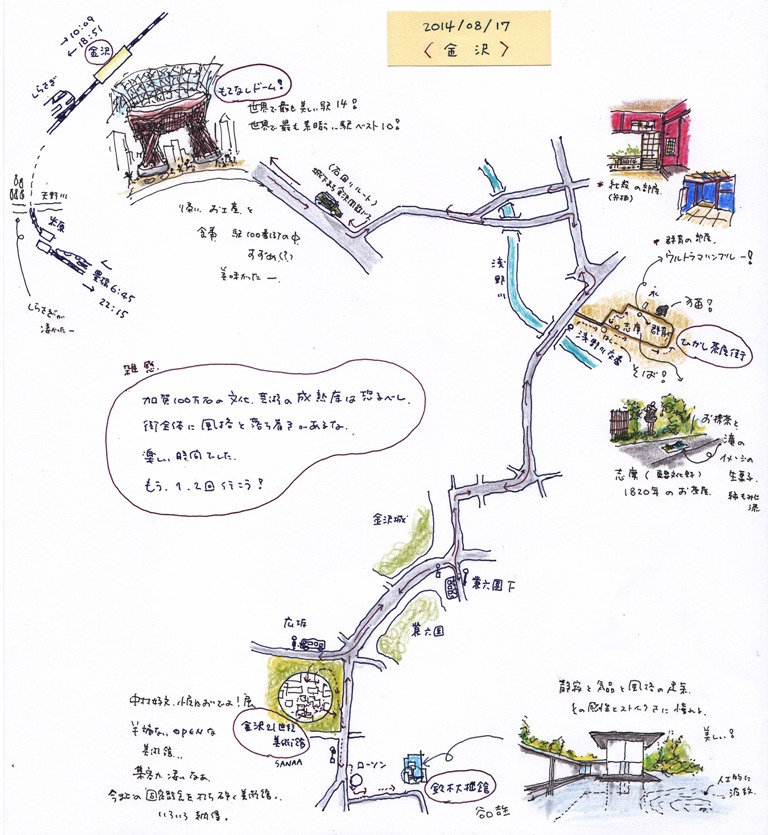 2014/08/17
〈金沢〉
→10:09
←18:51
金沢
しらさぎ
もてなしドーム!
世界で最も美しい駅 14!
世界で最も素晴らしい駅ベスト10!
天野川
米原
豊橋 6:45
22:15
しらさぎが
凄かったー
帰りに お土産と
駅
100番街の中
すすめ(?)
美味かったー
(右回りルート)
城下まち金沢周遊バス
浅野川
*
の部屋.
* 群青の部屋.
ウルトラマリンブルー!
志摩
群青
ひがし茶屋街
そば!
浅野川大橋
お抹茶と
滝の
イメージの
生菓子
志摩(重要文化財)
1820年のお茶屋.
雑感.
加賀100万石の文化、芸術の成熟度は恐るべし.
街全体に風格と落ち着きがあるな.
楽しい時間でした.
もう、1、2回行こう!
金沢城
兼六園下
兼六園
広坂
中村好文 小屋においでよ!展
金沢21世紀
美術館
SANAA
OPENな
美術館...
集客力凄いなあ.
今までの固定観念を打ち砕く美術館..
いろいろ納得.
ローソン
鈴木大拙館
谷口吉生
静寂と気品と風格の建築.
その感性とストイックさに憧れる.
美しい!
人工的に
波紋